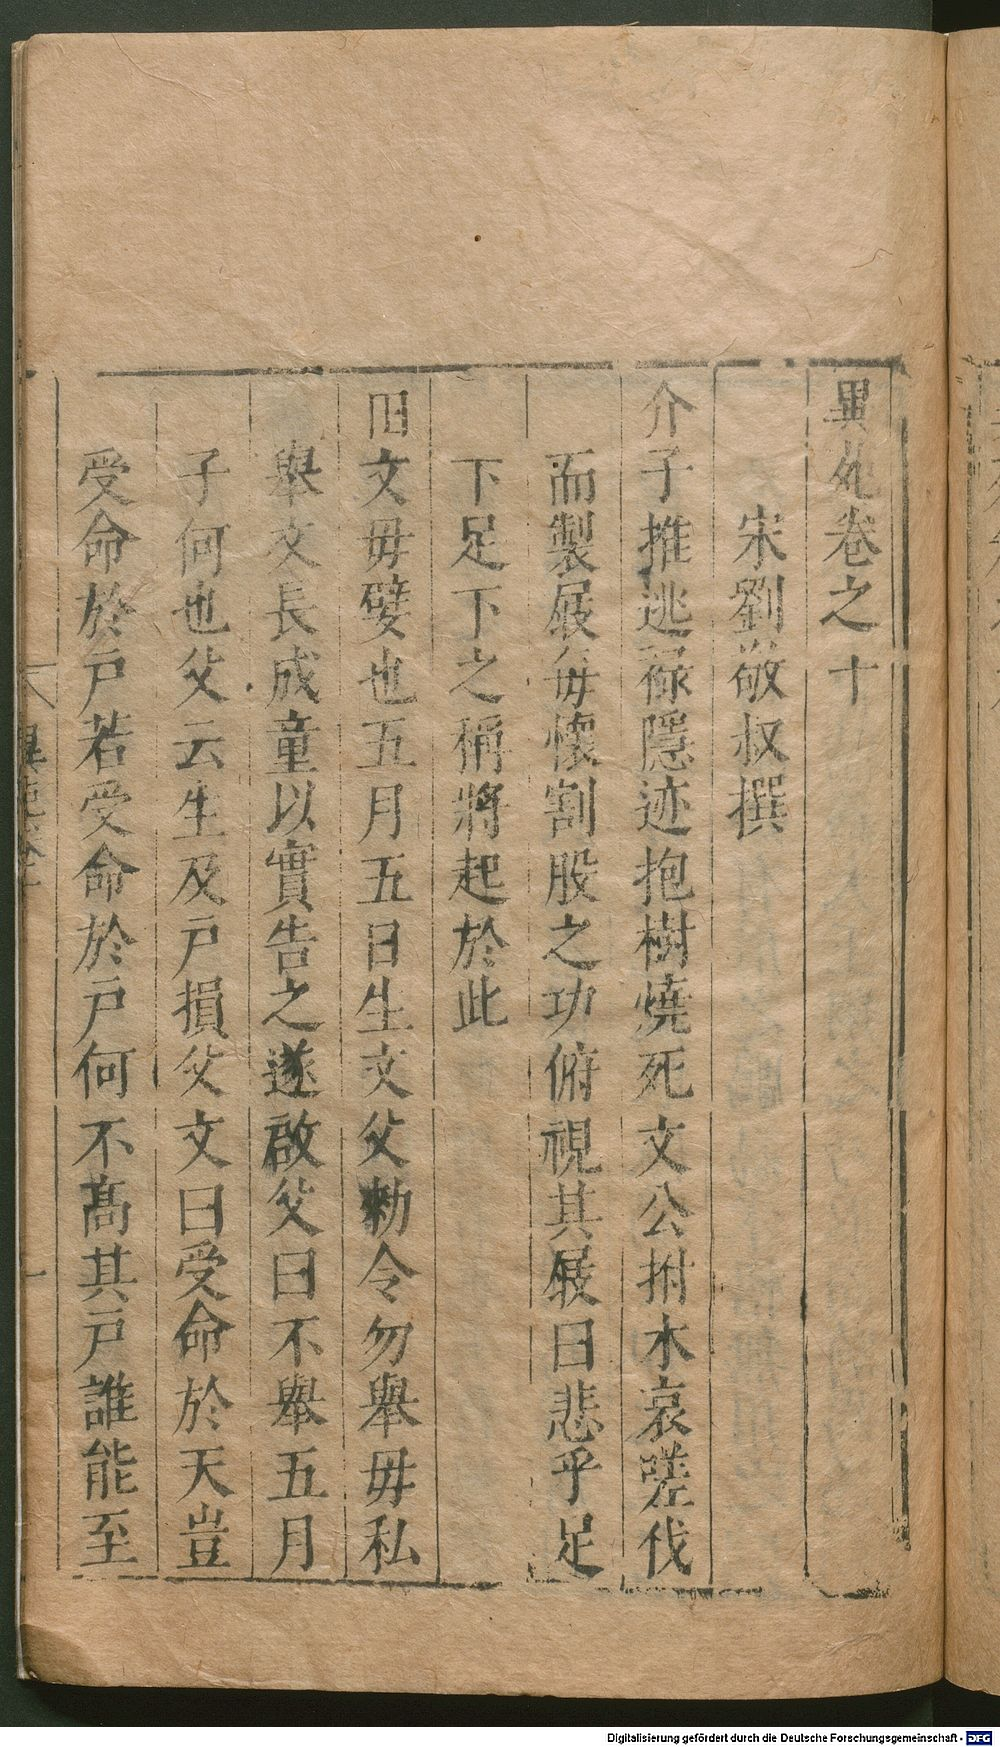 異苑卷之十
宋劉敬叔撰
介子推逃祿隱迹抱樹燒死文公拊木哀嗟伐
而製屐每懷割股之功俯視其屐曰悲乎足
下足下之稱將起於此
田文母嬖也五月五日生文父勑令勿舉母私
舉文長成童以實告之遂啟父曰不舉五月
子何也父云生及戶損父文曰受命於天豈
受命於戶若受命於戶何不髙其戶誰能至
異苑卷十
一
Digitalisierung gefördert durch die Deutsche Forschungsgemeinschaft - DFG